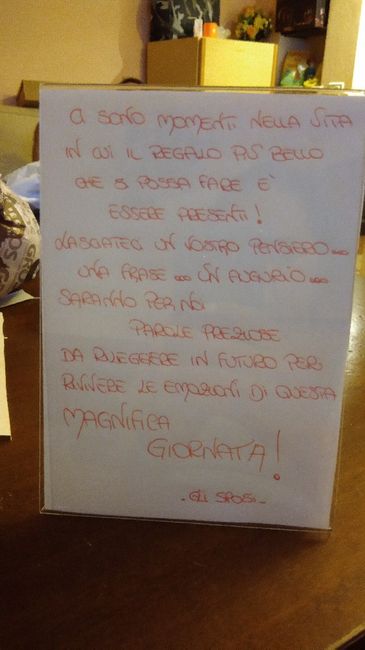 CI SONO MOMENTI NELLA VITA
IN CUI IL REGALO PIÙ BELLO
CHE SI POSSA FARE È
ESSERE PRESENTI!
LASCIATECI UN VOSTRO PENSIERO...
UNA FRASE... UN AUGURIO...
SARANNO PER NOI
PAROLE PREZIOSE
DA RILEGGERE IN FUTURO PER
RIVIVERE LE EMOZIONI DI QUESTA
MAGNIFICA
GIORNATA!
- GLI SPOSI -